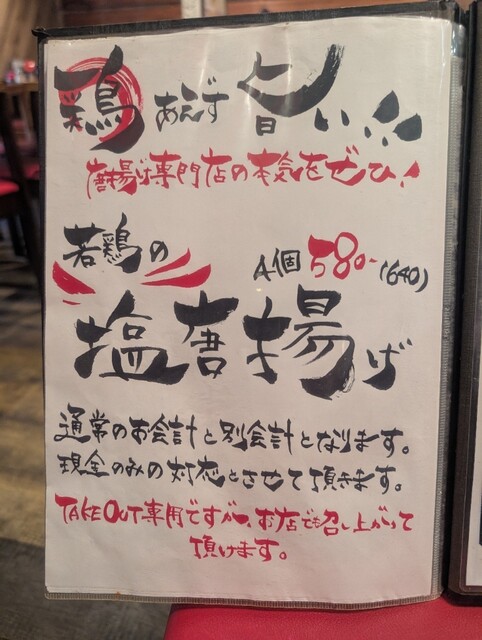 鶏あんず旨い…
唐揚げ専門店の本気をぜひ！
若鶏の
4個 580-(640)
塩唐揚げ
通常のお会計と別会計となります。
現金のみの対応とさせて頂きます。
TAKE OUT専用ですが、お店でも召し上がって
頂けます。